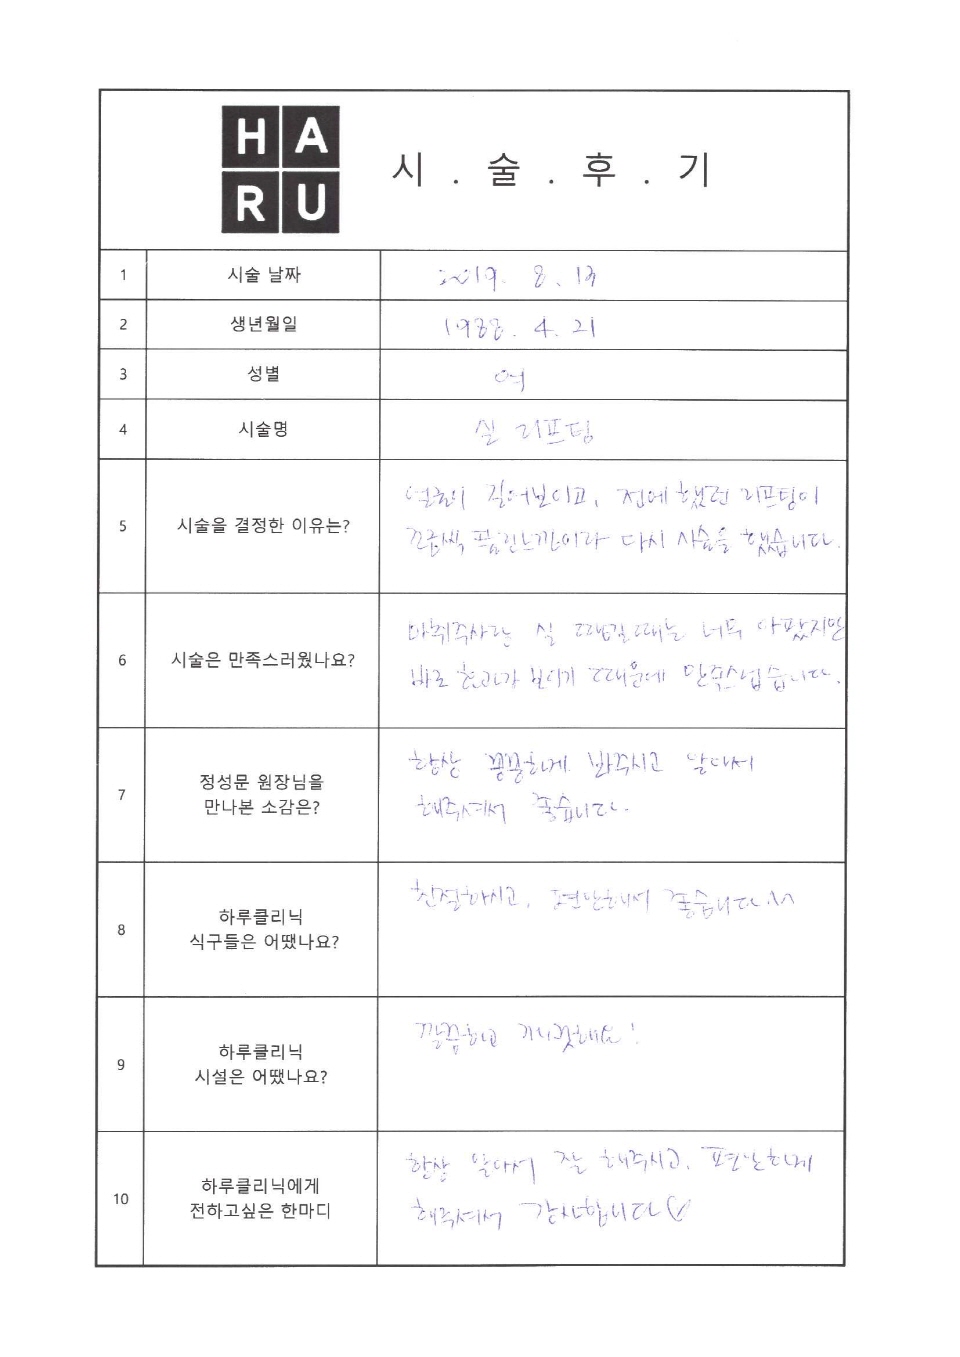 HA
RU
시 . 술 . 후 . 기
1 시술 날짜 2019. 8. 13
2 생년월일 1988. 4. 21
3 성별 여
4 시술명 실 리프팅
5 시술을 결정한 이유는?
얼굴이 길어보이고, 전에 했던 리프팅이
조금씩 풀린느낌이라 다시 시술을 했습니다.
6 시술은 만족스러웠나요?
마취주사랑 실 땡길때는 너무 아팠지만
바로 효과가 보이기 때문에 만족스럽습니다.
7 정성문 원장님을
만나본 소감은?
항상 꼼꼼하게 봐주시고 알아서
해주셔서 좋습니다.
8 하루클리닉
식구들은 어땠나요?
친절하시고, 편안해서 좋습니다.^^
9 하루클리닉
시설은 어땠나요?
깔끔하고 깨끗해요!
10 하루클리닉에게
전하고싶은 한마디
항상 알아서 잘 해주시고, 편안하게
해주셔서 감사합니다